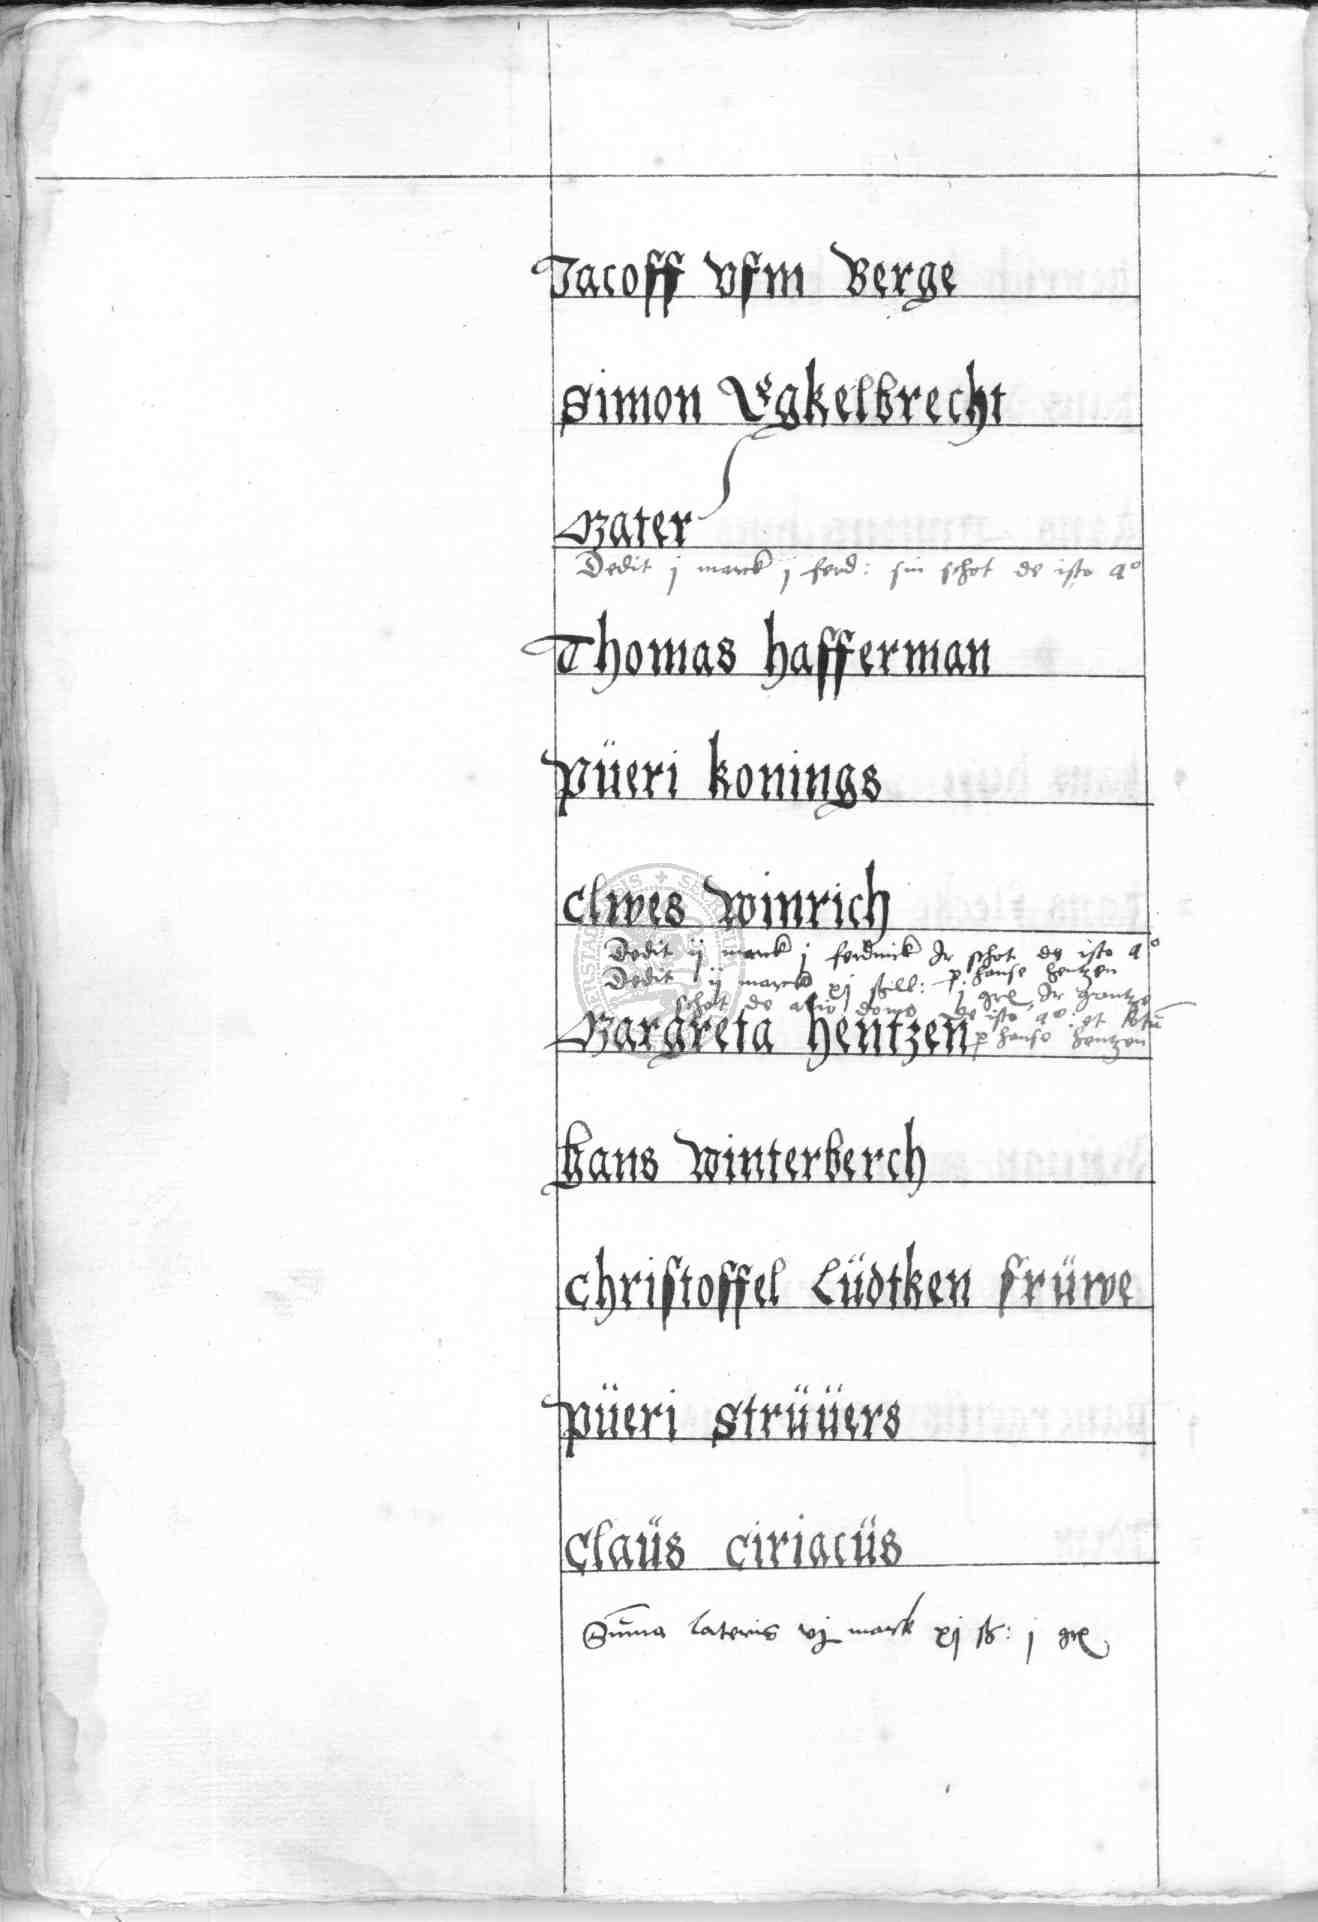 Jacoff vfm Berge
Simon Egkelbrecht
Mater
Dedit j marck j ferd: sin schot de isto a°
Thomas hafferman
püeri konings
Clwes Winrich
Dedit ij marck j ferdinck Ir schot de isto a°
Dedit ij marck xj schill: p hanse hentzen
schot de alio domo
j grl Ir
de isto a° et
Margreta hentzen p hanse hentzen
hans Winterberch
Christoffel Lüdtken früwe
püeri Strüüers
Claüs Ciriacüs
Suma lateris vj marck xj ß: j grl